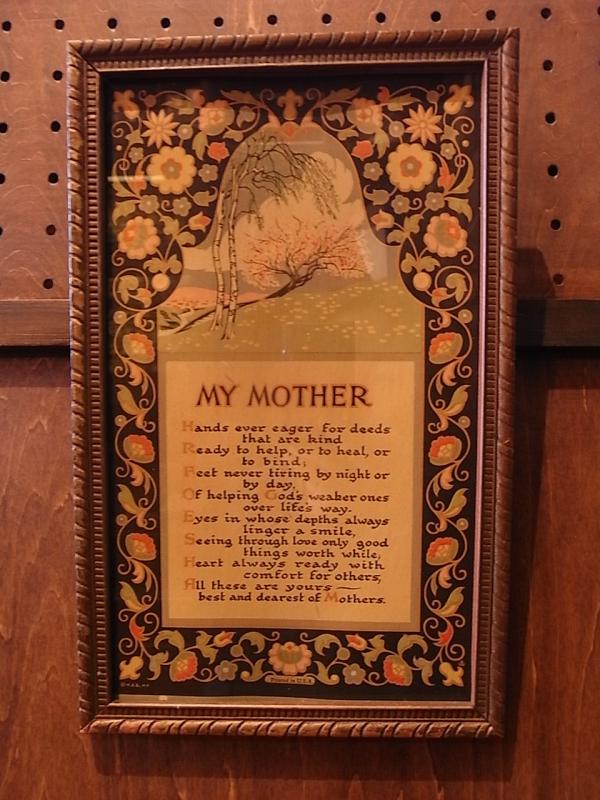 MY MOTHER
Hands ever eager for deeds
that are kind
Ready to help, or to heal, or
to bind;
Feet never tiring by night or
by day,
Of helping God's weaker ones
over life's way.
Eyes in whose depths always
linger a smile,
Seeing through love only good
things worth while,
Heart always ready with
comfort for others,
All these are yours —
best and dearest of Mothers.
Printed in U.S.A